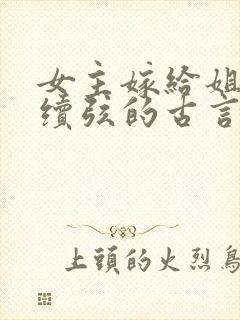 女主嫁给姐
续弦的古言
上頭的火烈鳥